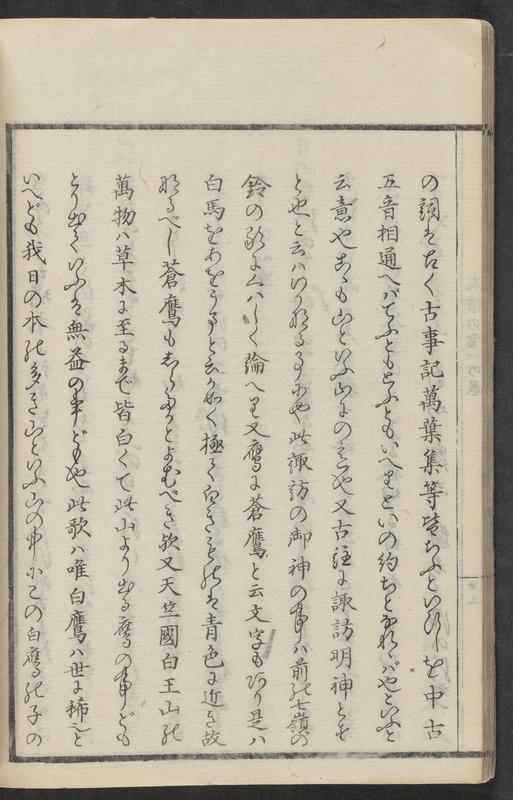 の詞は古く古事記萬葉集等皆ちふといひしを中古
五音相通へバてふともとふともいへりといの約ちとなれバやといふと
云意也あらも山といふ山のミや又古註に諏訪明神とす
とやと云ハいかなる事にや此諏訪の御神の事ハ前の七嶺の
鈴の歌にくハしく論へり又鷹に蒼鷹と云文字もあり是ハ
白馬をあをうまと云如く極く白きものは青色に近き故
なるべし蒼鷹もしらたかとよむべき歟又天竺國白王山の
萬物ハ草木に至るまで皆白くて此山より出る鷹の事ども
とり出ていふは無益の事ども也此歌ハ唯白鷹ハ世に稀也と
いへども我日の本の多き山といふ山の中にこの白鷹の子の